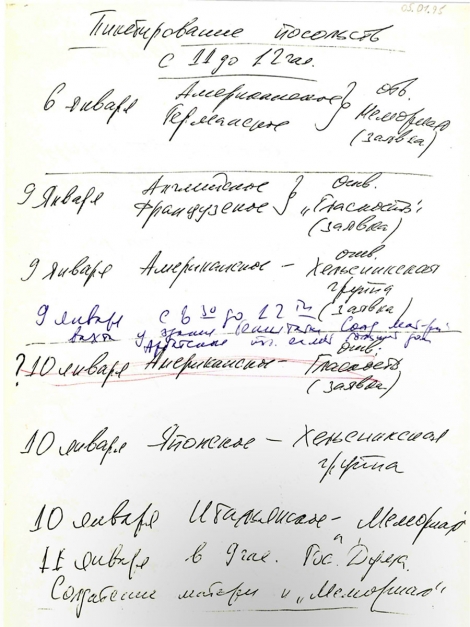 05.01.95
Пикетирование посольств
с 11 до 12 час.
6 января Американское } отв.
Германское Мемориал
(заявка)
9 января Английское } отв.
Французское "Гласность"
(заявка)
отв.
9 января Американское – Хельсинкская
группа
(заявка)
9 января с 8 30 до 12
вахта у здания Солд. мат-ри
отв.
? 10 января Американское – Гласность
(заявка)
10 января Японское – Хельсинкская
группа
10 января Итальянское – Мемориал
11 января в 9 час. Гос. Дума.
Солдатские матери и "Мемориал"